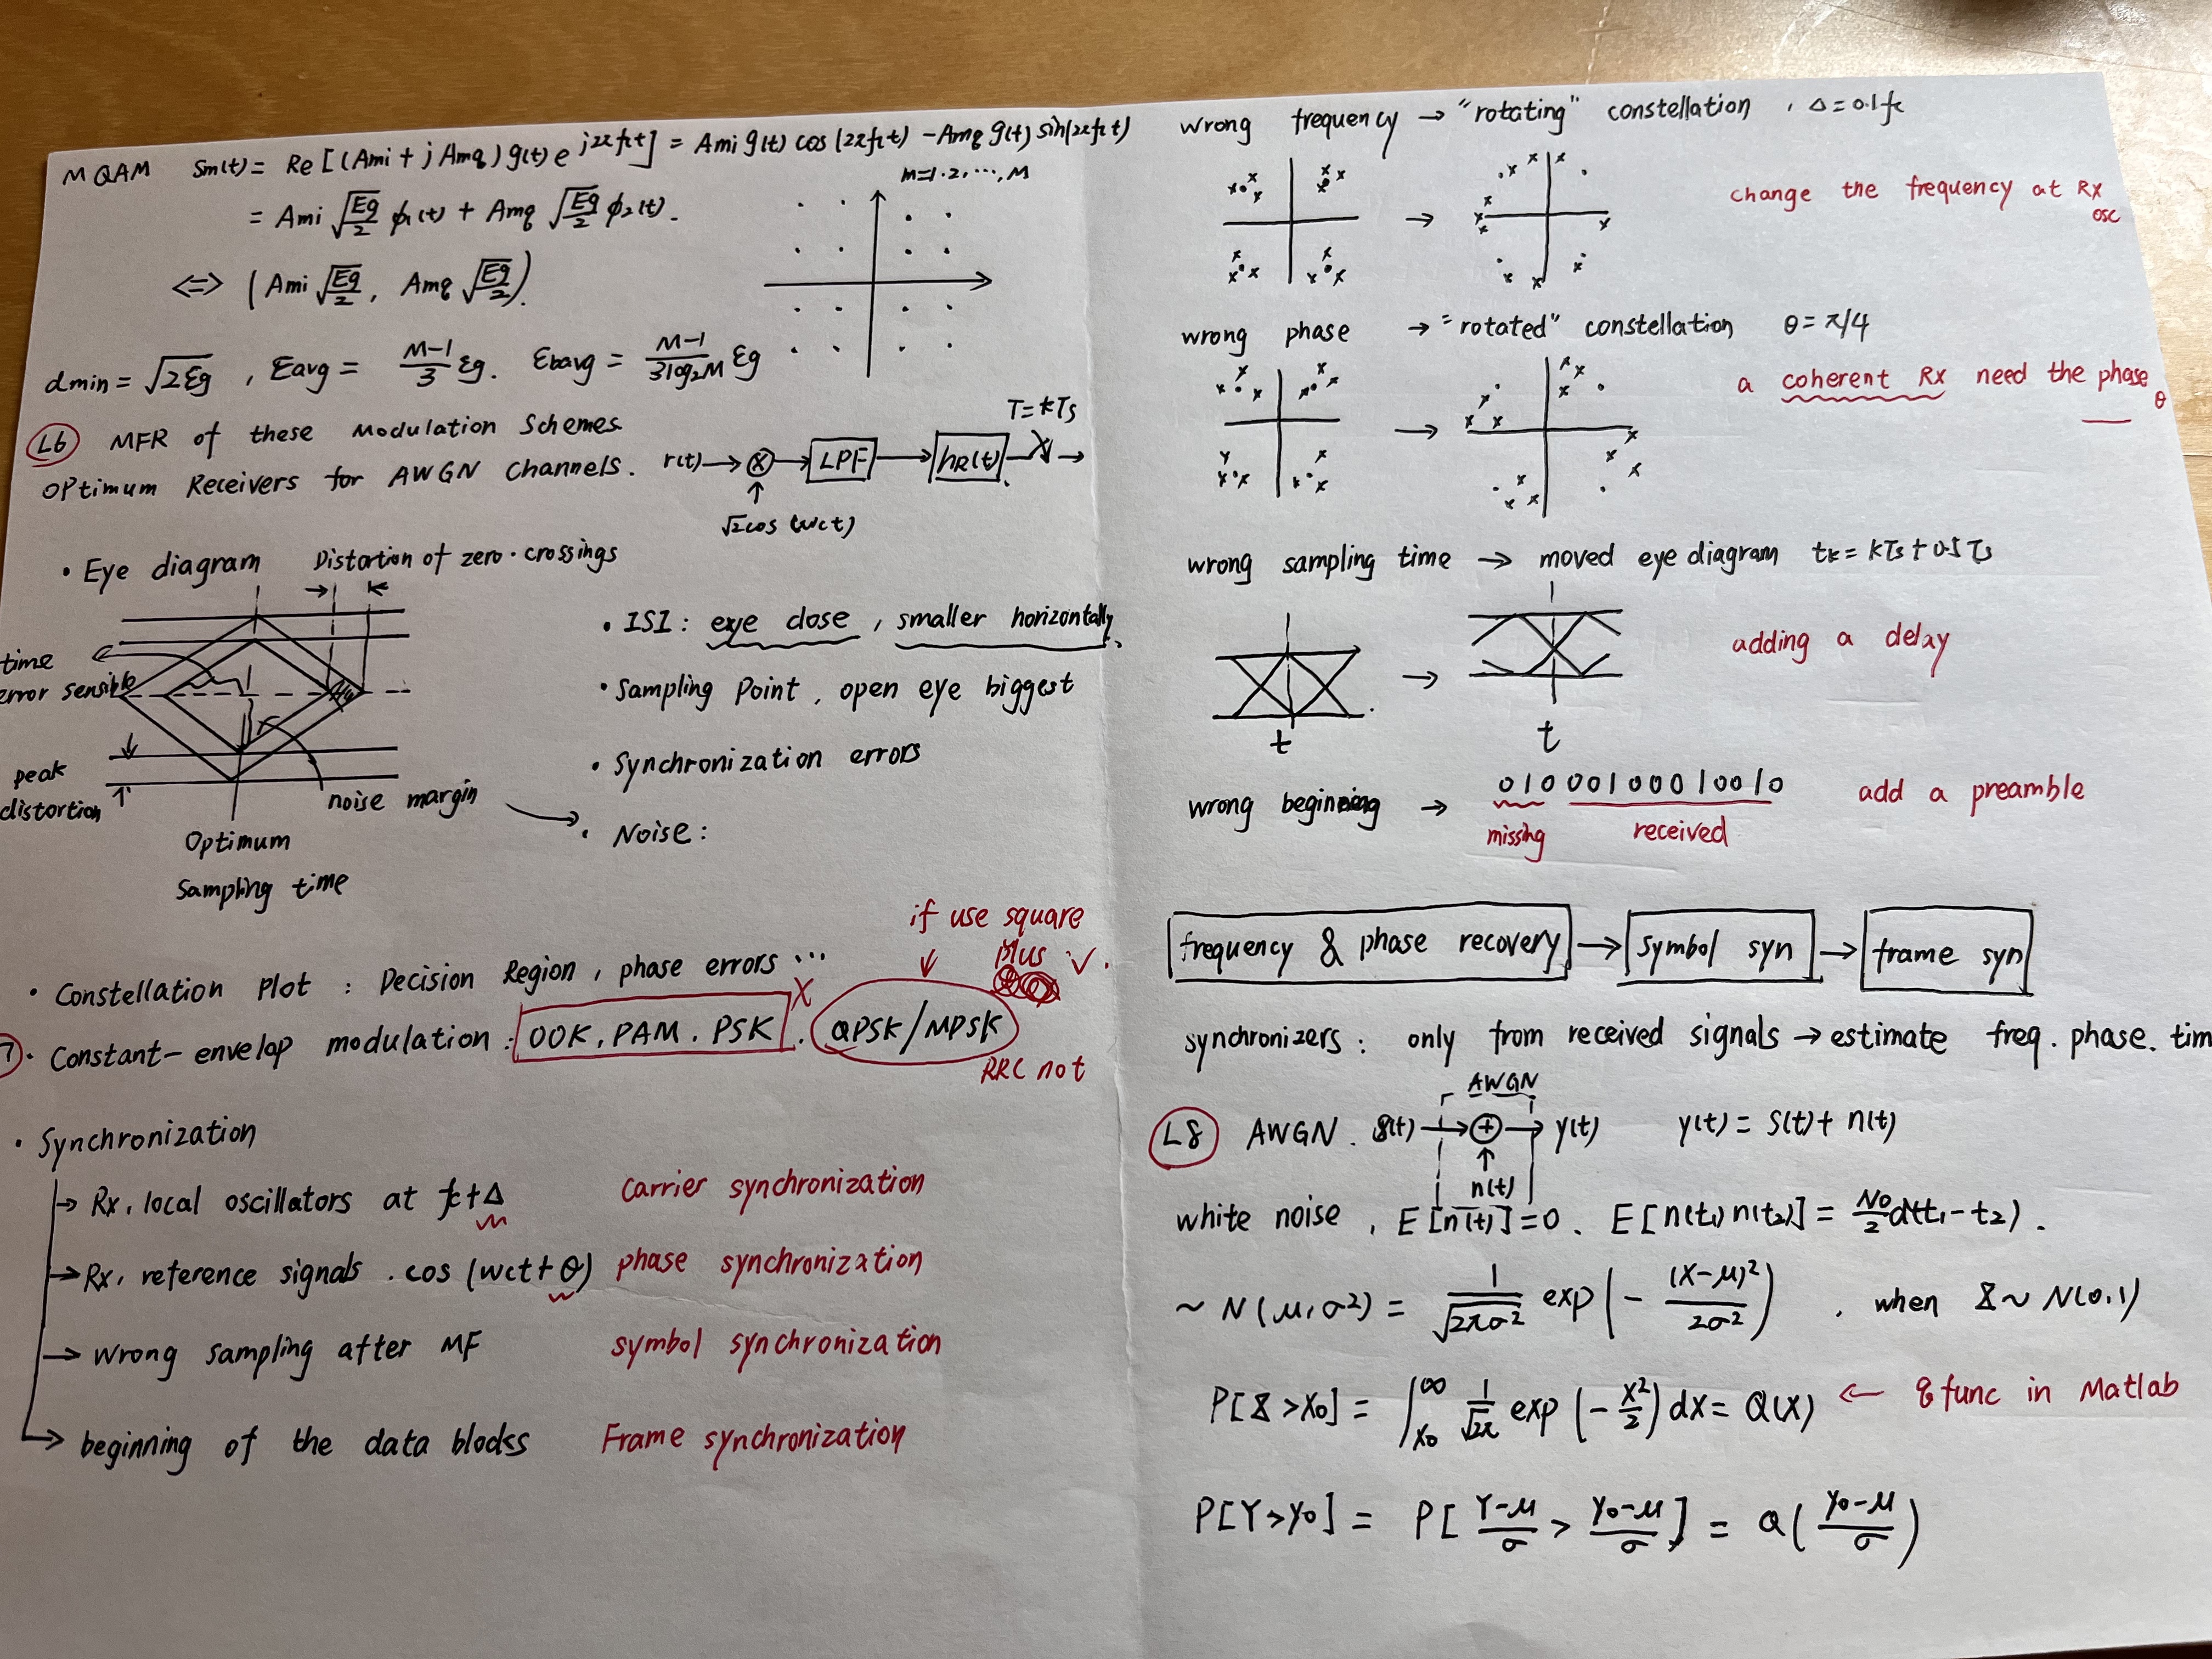 MQAM Sm(t) = Re[(Ami + j Amq) g(t) e^{j2πfct}] = Ami g(t) cos(2πfct) - Amq g(t) sin(2πfct)
m=1.2,...,M
= Ami √(Eg/2) ϕ1(t) + Amq √(Eg/2) ϕ2(t).
⟺ (Ami √(Eg/2), Amq √(Eg/2)).
dmin = √(2Eg), Eavg = (M-1)/3 Eg. Ebavg = (M-1)/(3log2M) Eg
L6 MFR of these Modulation Schemes
Optimum Receivers for AWGN Channels.
r(t) → ⊗ → LPF → hR(t) → T=kTs
√2cos(wct)
• Eye diagram
Distortion of zero-crossings
time
error sensible
peak
distortion
noise margin
Optimum
Sampling time
• ISI: eye close, smaller horizontally.
• Sampling Point, open eye biggest
• Synchronization errors
• Noise:
• Constellation Plot: Decision Region, phase errors ...
if use square
plus ✓.
• Constant-envelop modulation: OOK, PAM. PSK X. QPSK/MPSK
RRC not
• Synchronization
→ Rx, local oscillators at fc+Δ carrier synchronization
→ Rx, reference signals. cos(wct+θ) phase synchronization
→ wrong sampling after MF symbol synchronization
→ beginning of the data blocks Frame synchronization
wrong frequency → "rotating" constellation, Δ=0.1fc
change the frequency at Rx
osc
wrong phase → "rotated" constellation θ=π/4
a coherent Rx need the phase
θ
wrong sampling time → moved eye diagram tk = kTs+0.5Ts
adding a delay
t
t
wrong beginning → 01000100010010 add a preamble
missing received
frequency & phase recovery → symbol syn → frame syn
synchronizers: only from received signals → estimate freq. phase. tim
AWGN
L8 AWGN. s(t) → ⊕ → y(t) y(t) = s(t) + n(t)
n(t)
white noise, E[n(t)]=0. E[n(t1)n(t2)] = N0/2 d(t1-t2).
~ N(μ,σ2) = 1/√(2πσ2) exp(-(x-μ)2/2σ2), when X~N(0,1)
P[X>x0] = ∫_{x0}^{∞} 1/√2π exp(-x2/2) dx = Q(x) ← qfunc in Matlab
P[Y>y0] = P[(Y-μ)/σ > (y0-μ)/σ] = Q((y0-μ)/σ)